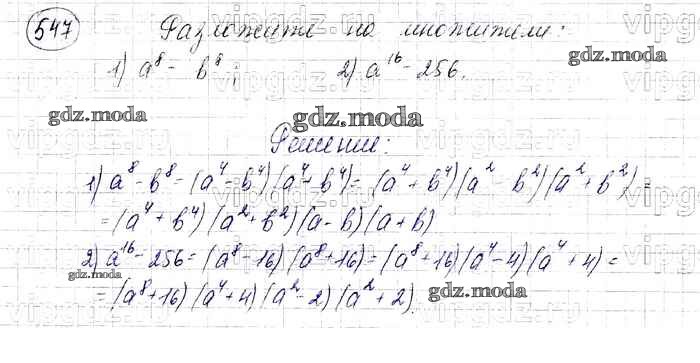 547 Разложите на множители:
1) a⁸ - b⁸; 2) a¹⁶ - 256.
gdz.moda gdz.moda
gdz.moda
Решение:
1) a⁸ - b⁸ = (a⁴ - b⁴)(a⁴ + b⁴) = (a⁴ + b⁴)(a² - b²)(a² + b²) =
= (a⁴ + b⁴)(a² + b²)(a - b)(a + b)
2) a¹⁶ - 256 = (a⁸ - 16)(a⁸ + 16) = (a⁸ + 16)(a⁴ - 4)(a⁴ + 4) =
gdz.moda
= (a⁸ + 16)(a⁴ + 4)(a² - 2)(a² + 2).
gdz.moda